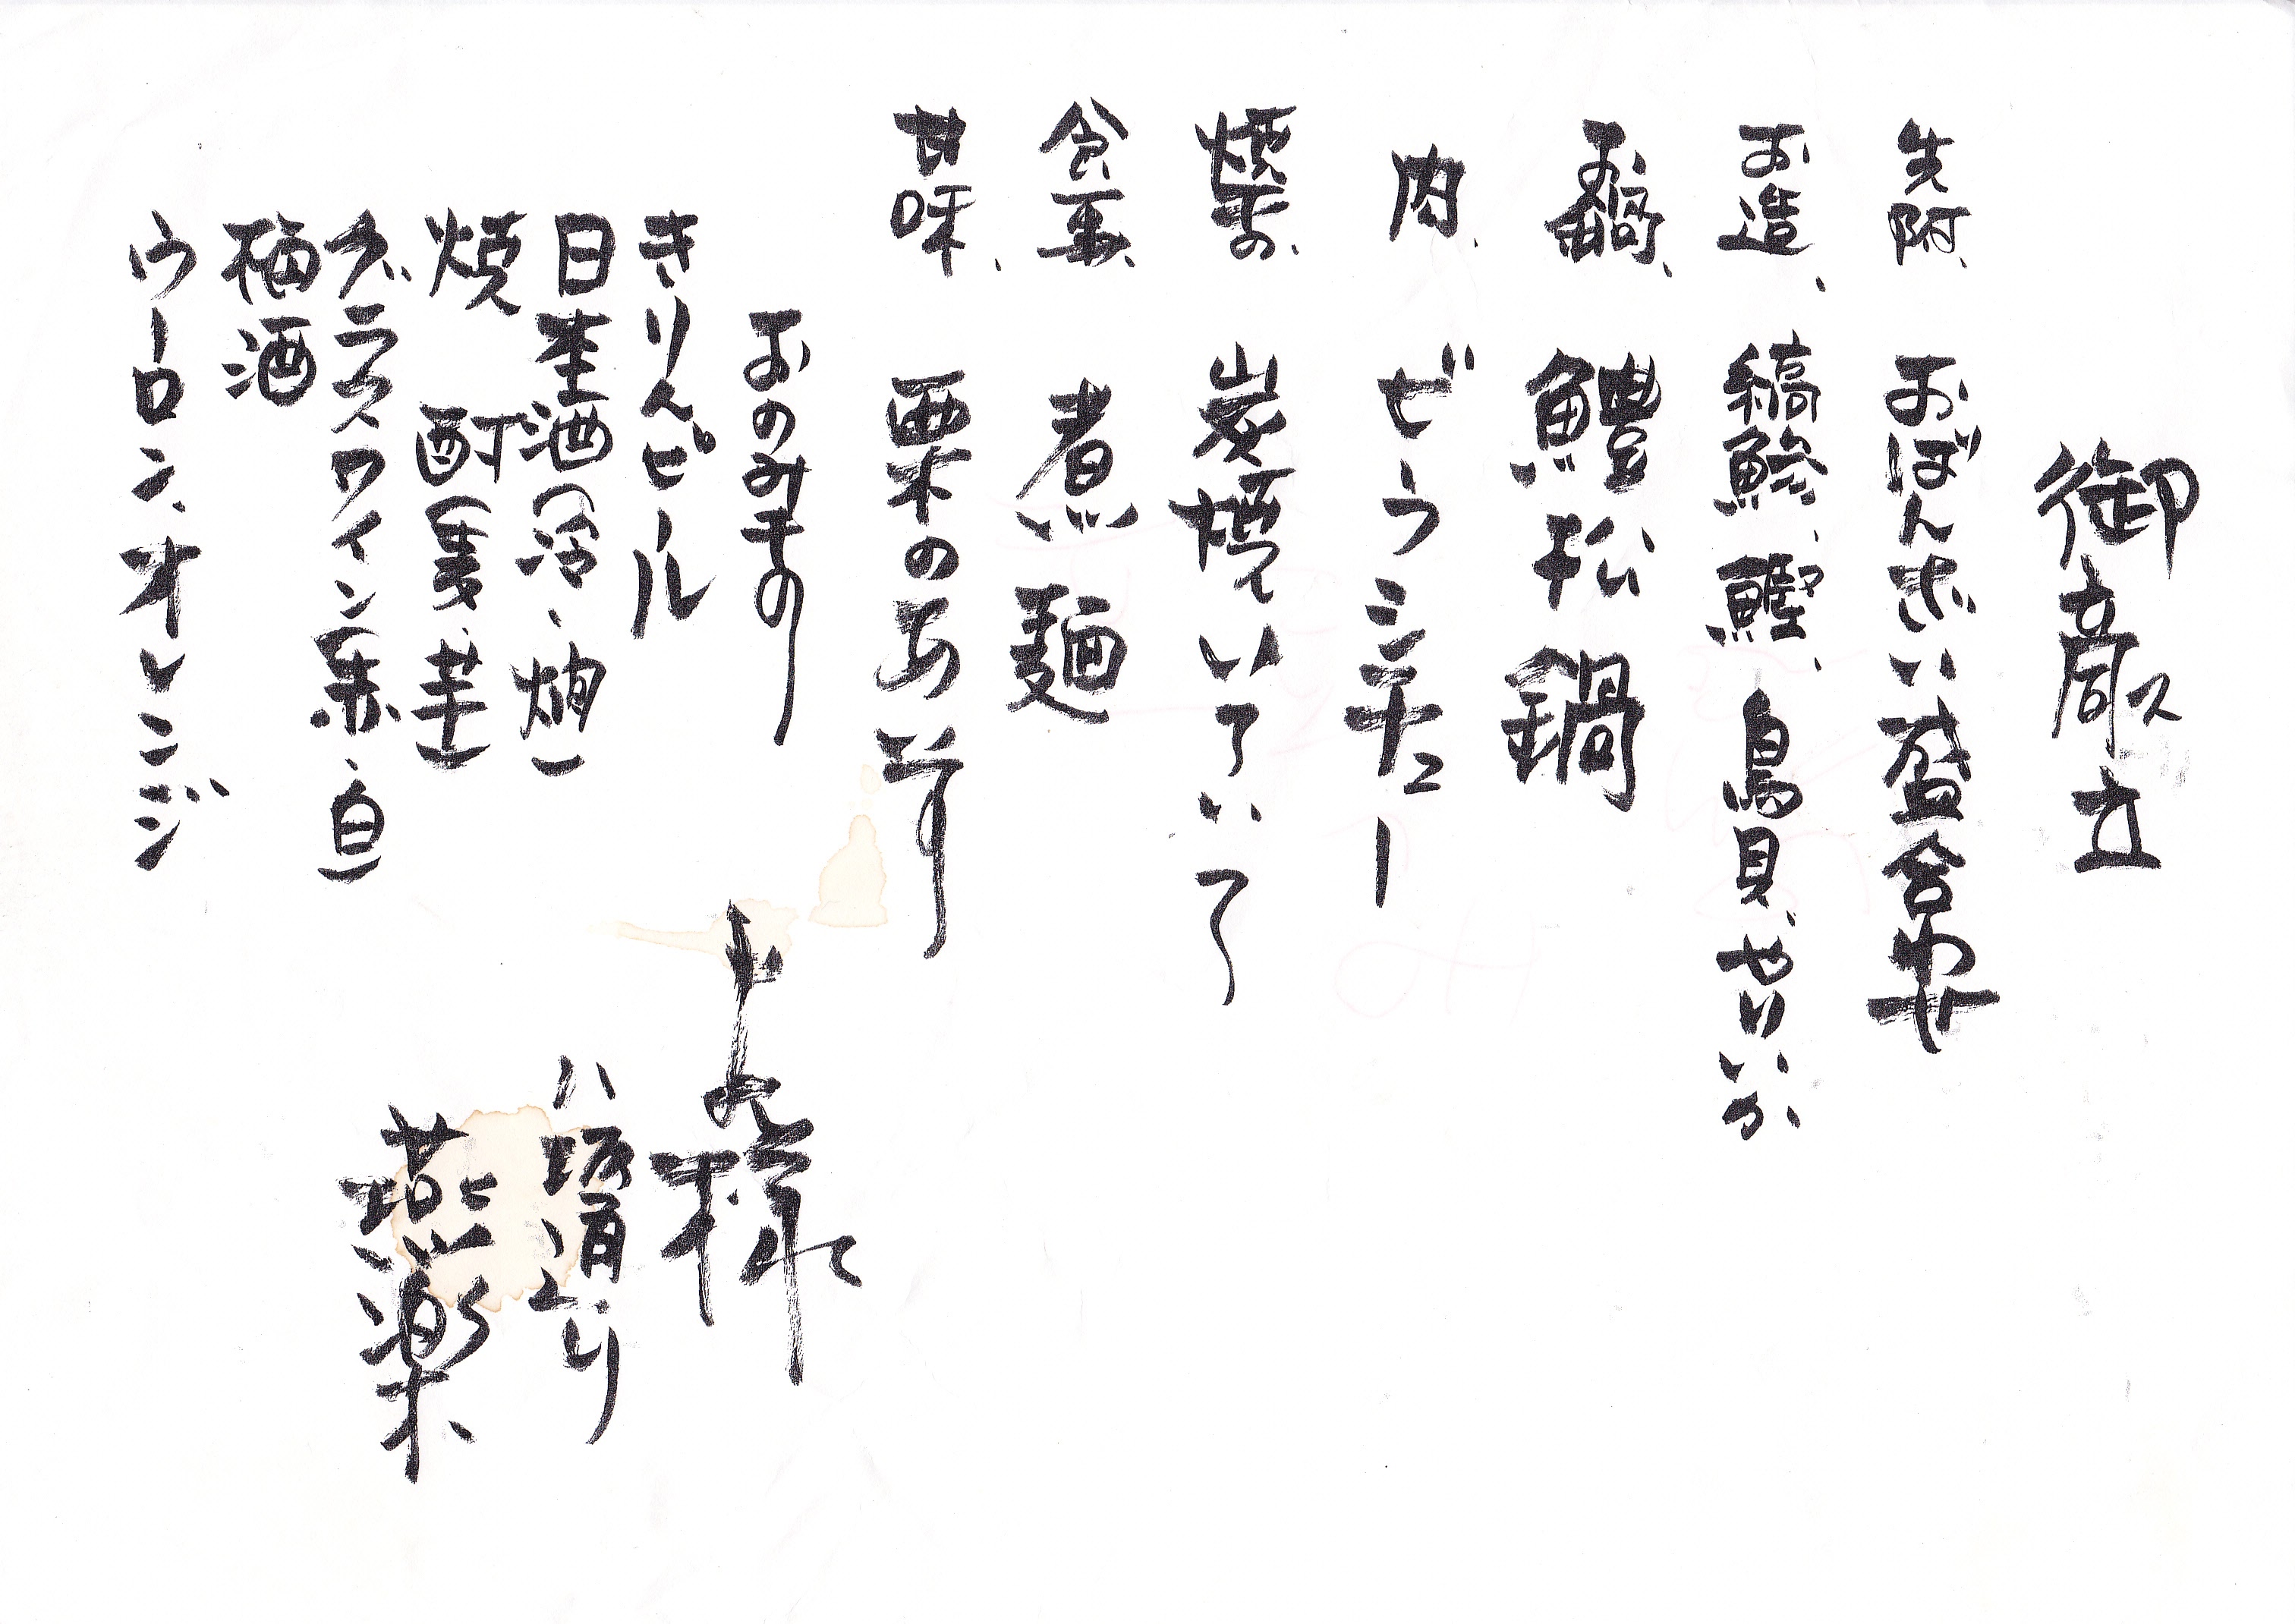 御献立
先附、おばんざい盛合わせ
お造、縞鯵、鰹、鳥貝、やりいか
お鍋、鱧松鍋
肉、ぜうシチュー
焼もの、炭焼いろいろ
食事、煮麺
甘味、栗のお汁
おのみもの
きりんビール
日本酒（冷、燗）
焼酎（麦、芋）
グラスワイン（赤、白）
梅酒
ウーロン、オレンジ
上 様
八坂通り
燕楽